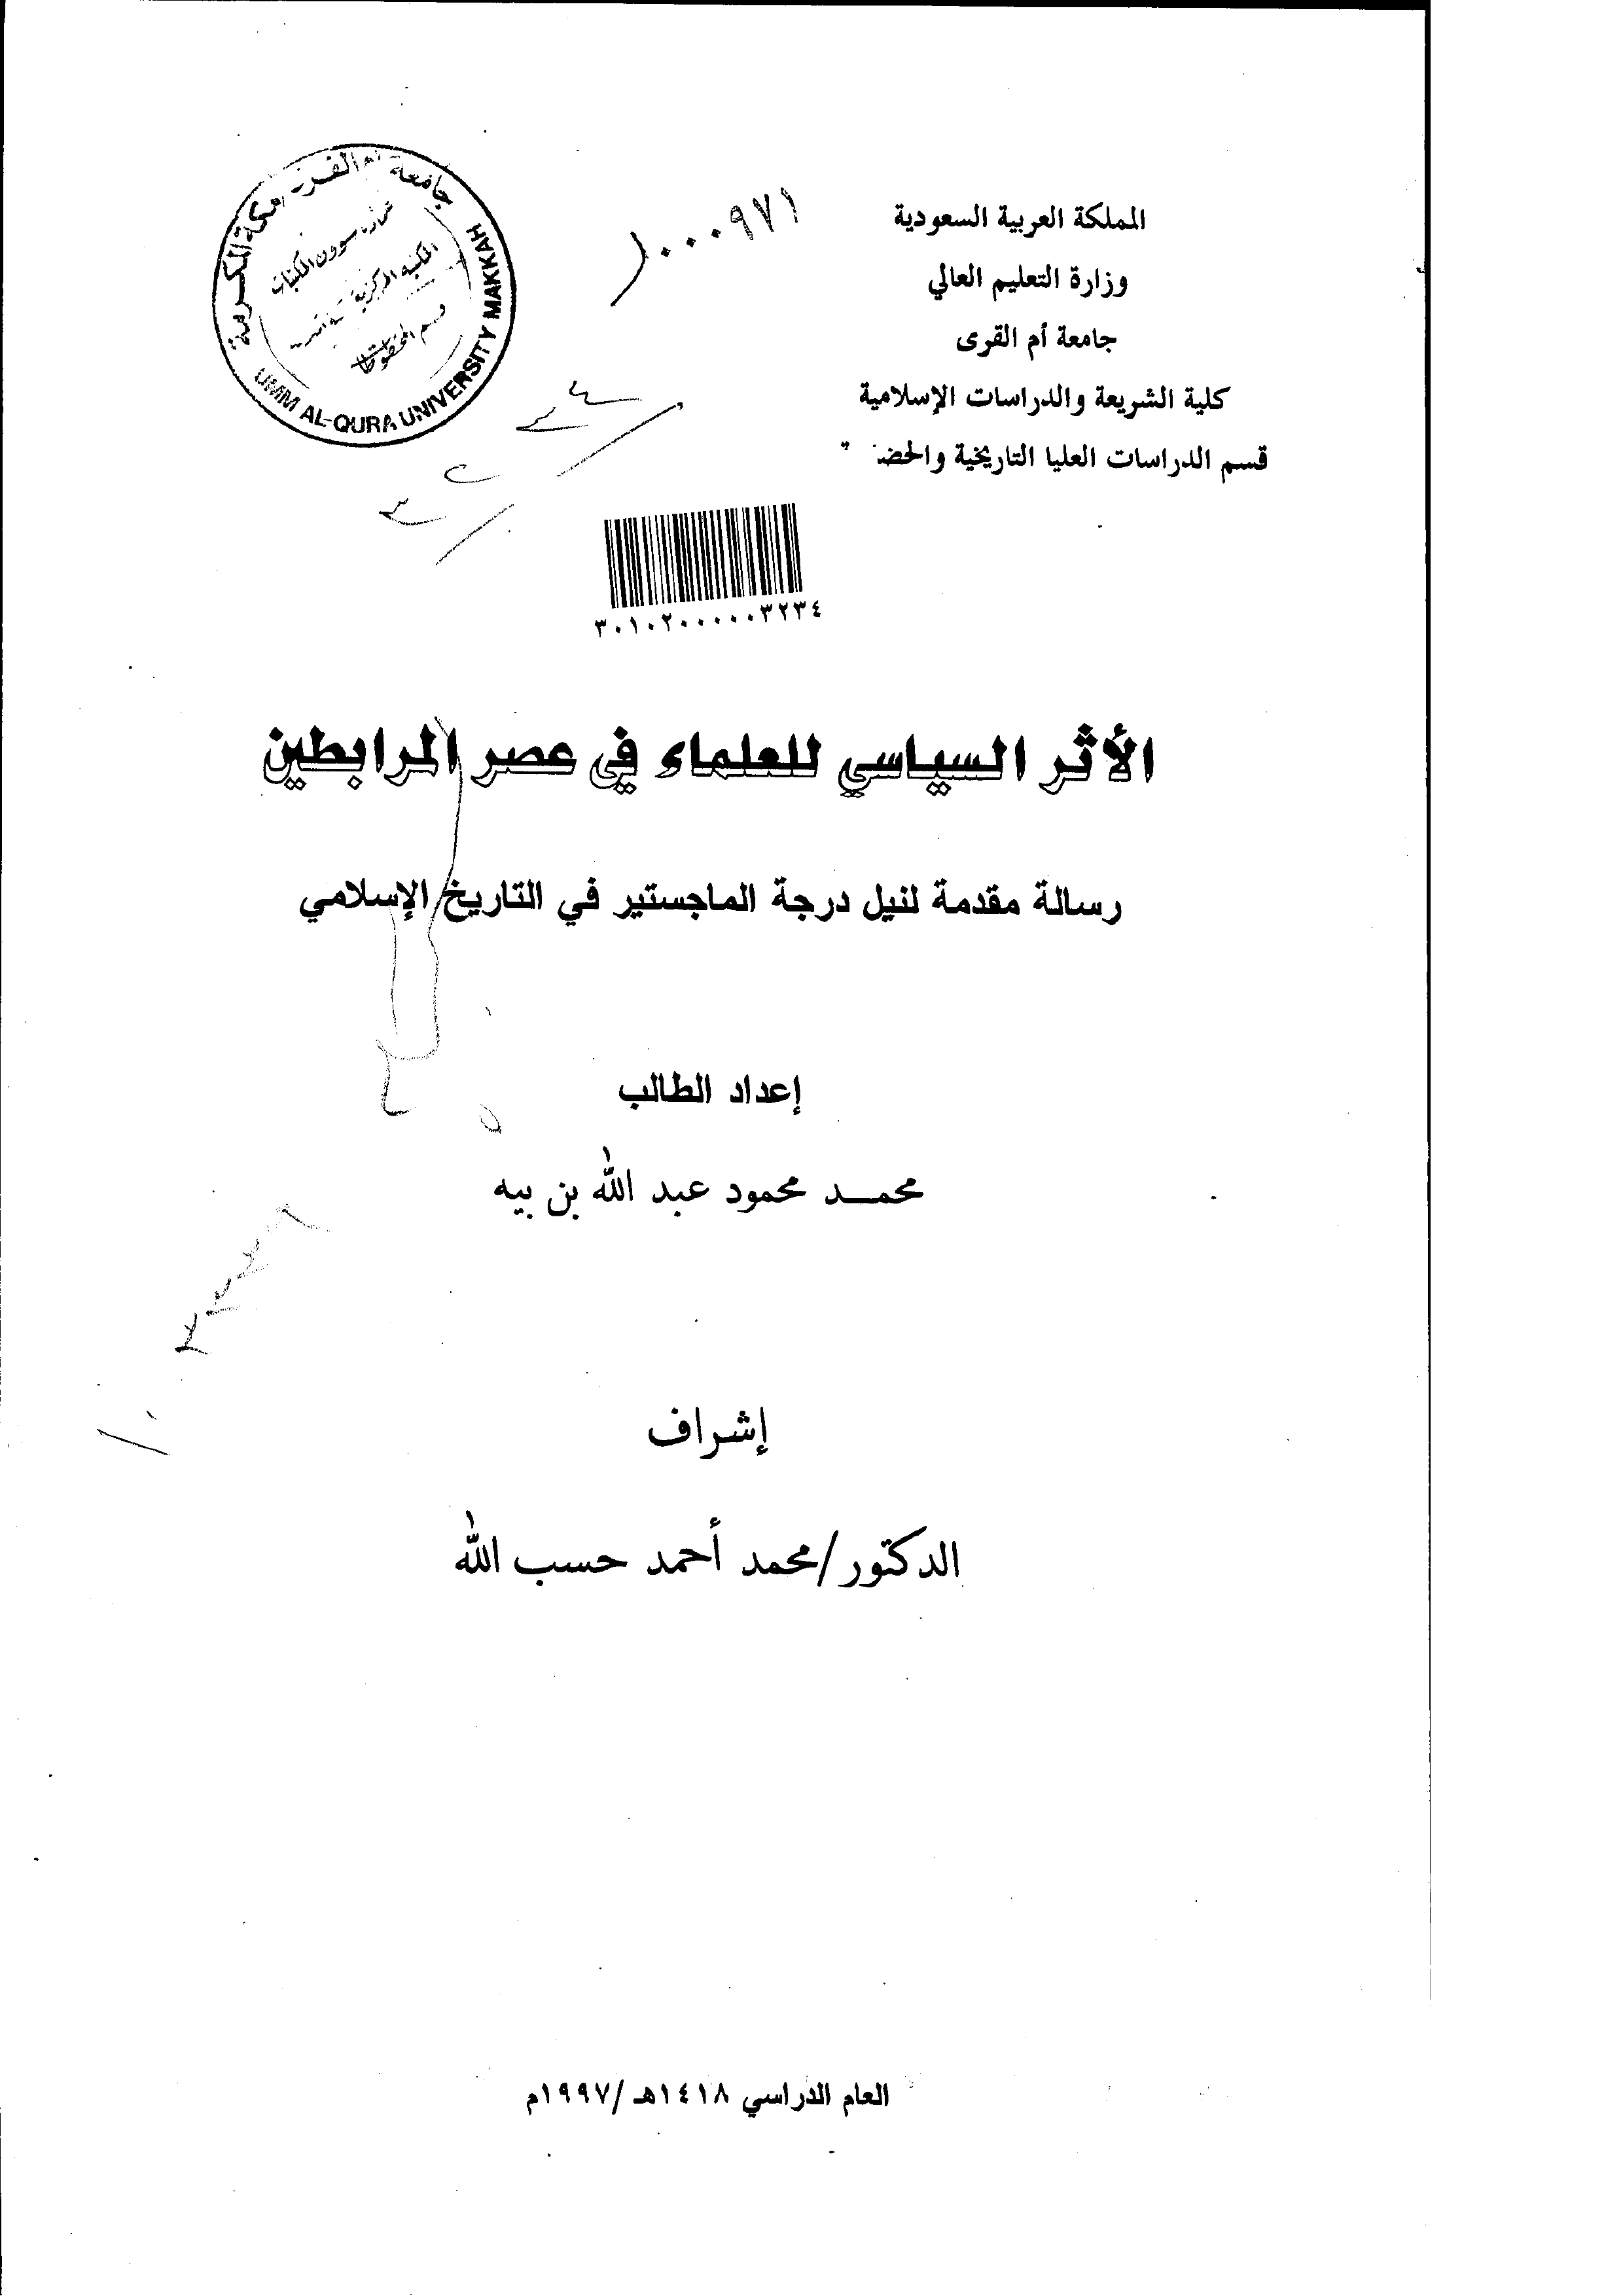 المملكة العربية السعودية
وزارة التعليم العالي
جامعة أم القرى
كلية الشريعة والدراسات الإسلامية
قسم الدراسات العليا التاريخية
١٠٠٠٩٧١
جامعة أم القرى مكة المكرمة
المكتبة المركزية
قسم المخطوطات
UMM AL-QURA UNIVERSITY MAKKAH
٣٠١٠٢٠٠٠٠٠٣٢٣٤
الأثر السياسي للعلماء في عصر المرابطين
رسالة مقدمة لنيل درجة الماجستير في التاريخ الإسلامي
إعداد الطالب
محمـــد محمود عبد الله بن بيه
إشراف
الدكتور/محمد أحمد حسب الله
العام الدراسي ١٤١٨هـ/١٩٩٧م